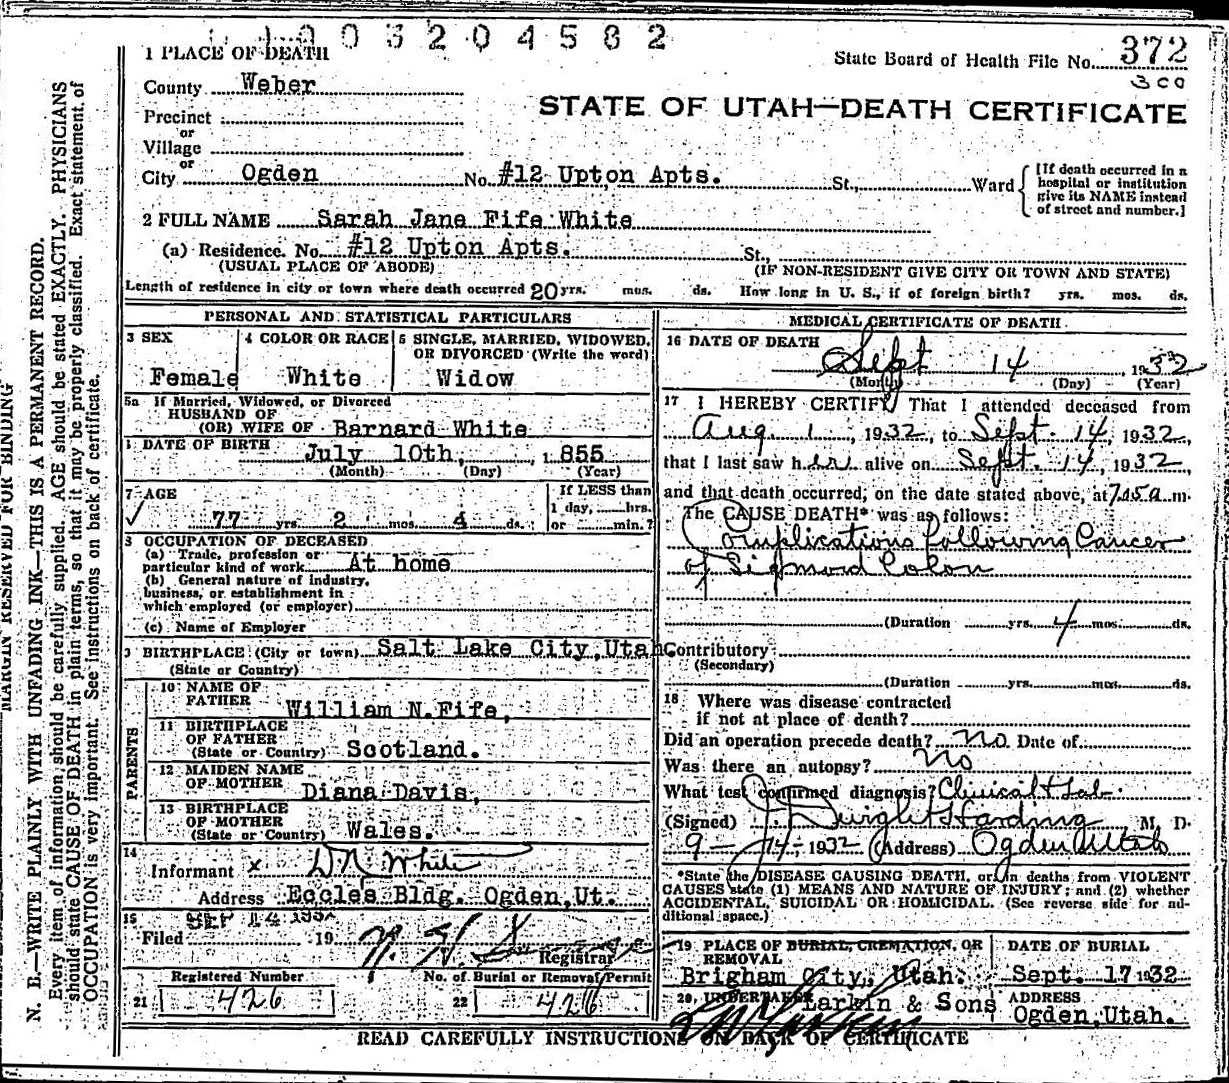 1003204582
1 PLACE OF DEATH
State Board of Health File No. 372
300
County Weber
STATE OF UTAH—DEATH CERTIFICATE
Precinct
or
Village
or
City Ogden No. #12 Upton Apts. St., Ward
[If death occurred in a hospital or institution give its NAME instead of street and number.]
2 FULL NAME Sarah Jane Fife White
(a) Residence. No. #12 Upton Apts. St.,
(USUAL PLACE OF ABODE) (IF NON-RESIDENT GIVE CITY OR TOWN AND STATE)
Length of residence in city or town where death occurred 20 yrs. mos. ds. How long in U. S., if of foreign birth? yrs. mos. ds.
PERSONAL AND STATISTICAL PARTICULARS
3 SEX
Female
4 COLOR OR RACE
White
5 SINGLE, MARRIED, WIDOWED,
OR DIVORCED (Write the word)
Widow
5a If Married, Widowed, or Divorced
HUSBAND OF
(OR) WIFE OF Barnard White
DATE OF BIRTH
July 10th, 1855
(Month) (Day) (Year)
7 AGE
77 yrs. 2 mos. 4 ds.
If LESS than
1 day, hrs.
or min.?
8 OCCUPATION OF DECEASED
(a) Trade, profession or
particular kind of work At home
(b) General nature of industry,
business, or establishment in
which employed (or employer)
(c) Name of Employer
9 BIRTHPLACE (City or town) Salt Lake City, Utah
(State or Country)
PARENTS
10 NAME OF
FATHER William N. Fife,
11 BIRTHPLACE
OF FATHER
(State or Country) Scotland.
12 MAIDEN NAME
OF MOTHER Diana Davis,
13 BIRTHPLACE
OF MOTHER
(State or Country) Wales.
14
Informant x D R White
Address Eccles Bldg. Ogden, Ut.
15 SEP 14 1932
Filed 19
Registrar
Registered Number
21 426
No. of Burial or Removal Permit
22 426
MEDICAL CERTIFICATE OF DEATH
16 DATE OF DEATH
Sept 14, 1932
(Month) (Day) (Year)
17 I HEREBY CERTIFY, That I attended deceased from
Aug. 1, 1932, to Sept. 14, 1932,
that I last saw her alive on Sept. 14, 1932
and that death occurred, on the date stated above, at 7.05 a m.
The CAUSE DEATH* was as follows:
Complications following Cancer
of Sigmoid Colon
(Duration yrs. 4 mos. ds.
Contributory
(Secondary)
(Duration yrs. mos. ds.
18 Where was disease contracted
if not at place of death?
Did an operation precede death? No Date of
Was there an autopsy? No
What test confirmed diagnosis? Clinical + Lab.
(Signed) J. Dwight Harding M. D.
9-14-1932 (Address) Ogden Utah
*State the DISEASE CAUSING DEATH, or in deaths from VIOLENT
CAUSES state (1) MEANS AND NATURE OF INJURY; and (2) whether
ACCIDENTAL, SUICIDAL OR HOMICIDAL. (See reverse side for ad-
ditional space.)
19 PLACE OF BURIAL, CREMATION, OR
REMOVAL
Brigham City, Utah.
DATE OF BURIAL
Sept. 17 1932
20 UNDERTAKER Larkin & Sons
ADDRESS
Ogden, Utah.
READ CAREFULLY INSTRUCTIONS ON BACK OF CERTIFICATE
MARGIN RESERVED FOR BINDING
N. B.—WRITE PLAINLY WITH UNFADING INK—THIS IS A PERMANENT RECORD.
Every item of information should be carefully supplied. AGE should be stated EXACTLY. PHYSICIANS
should state CAUSE OF DEATH in plain terms, so that it may be properly classified. Exact statement of
OCCUPATION is very important. See instructions on back of certificate.